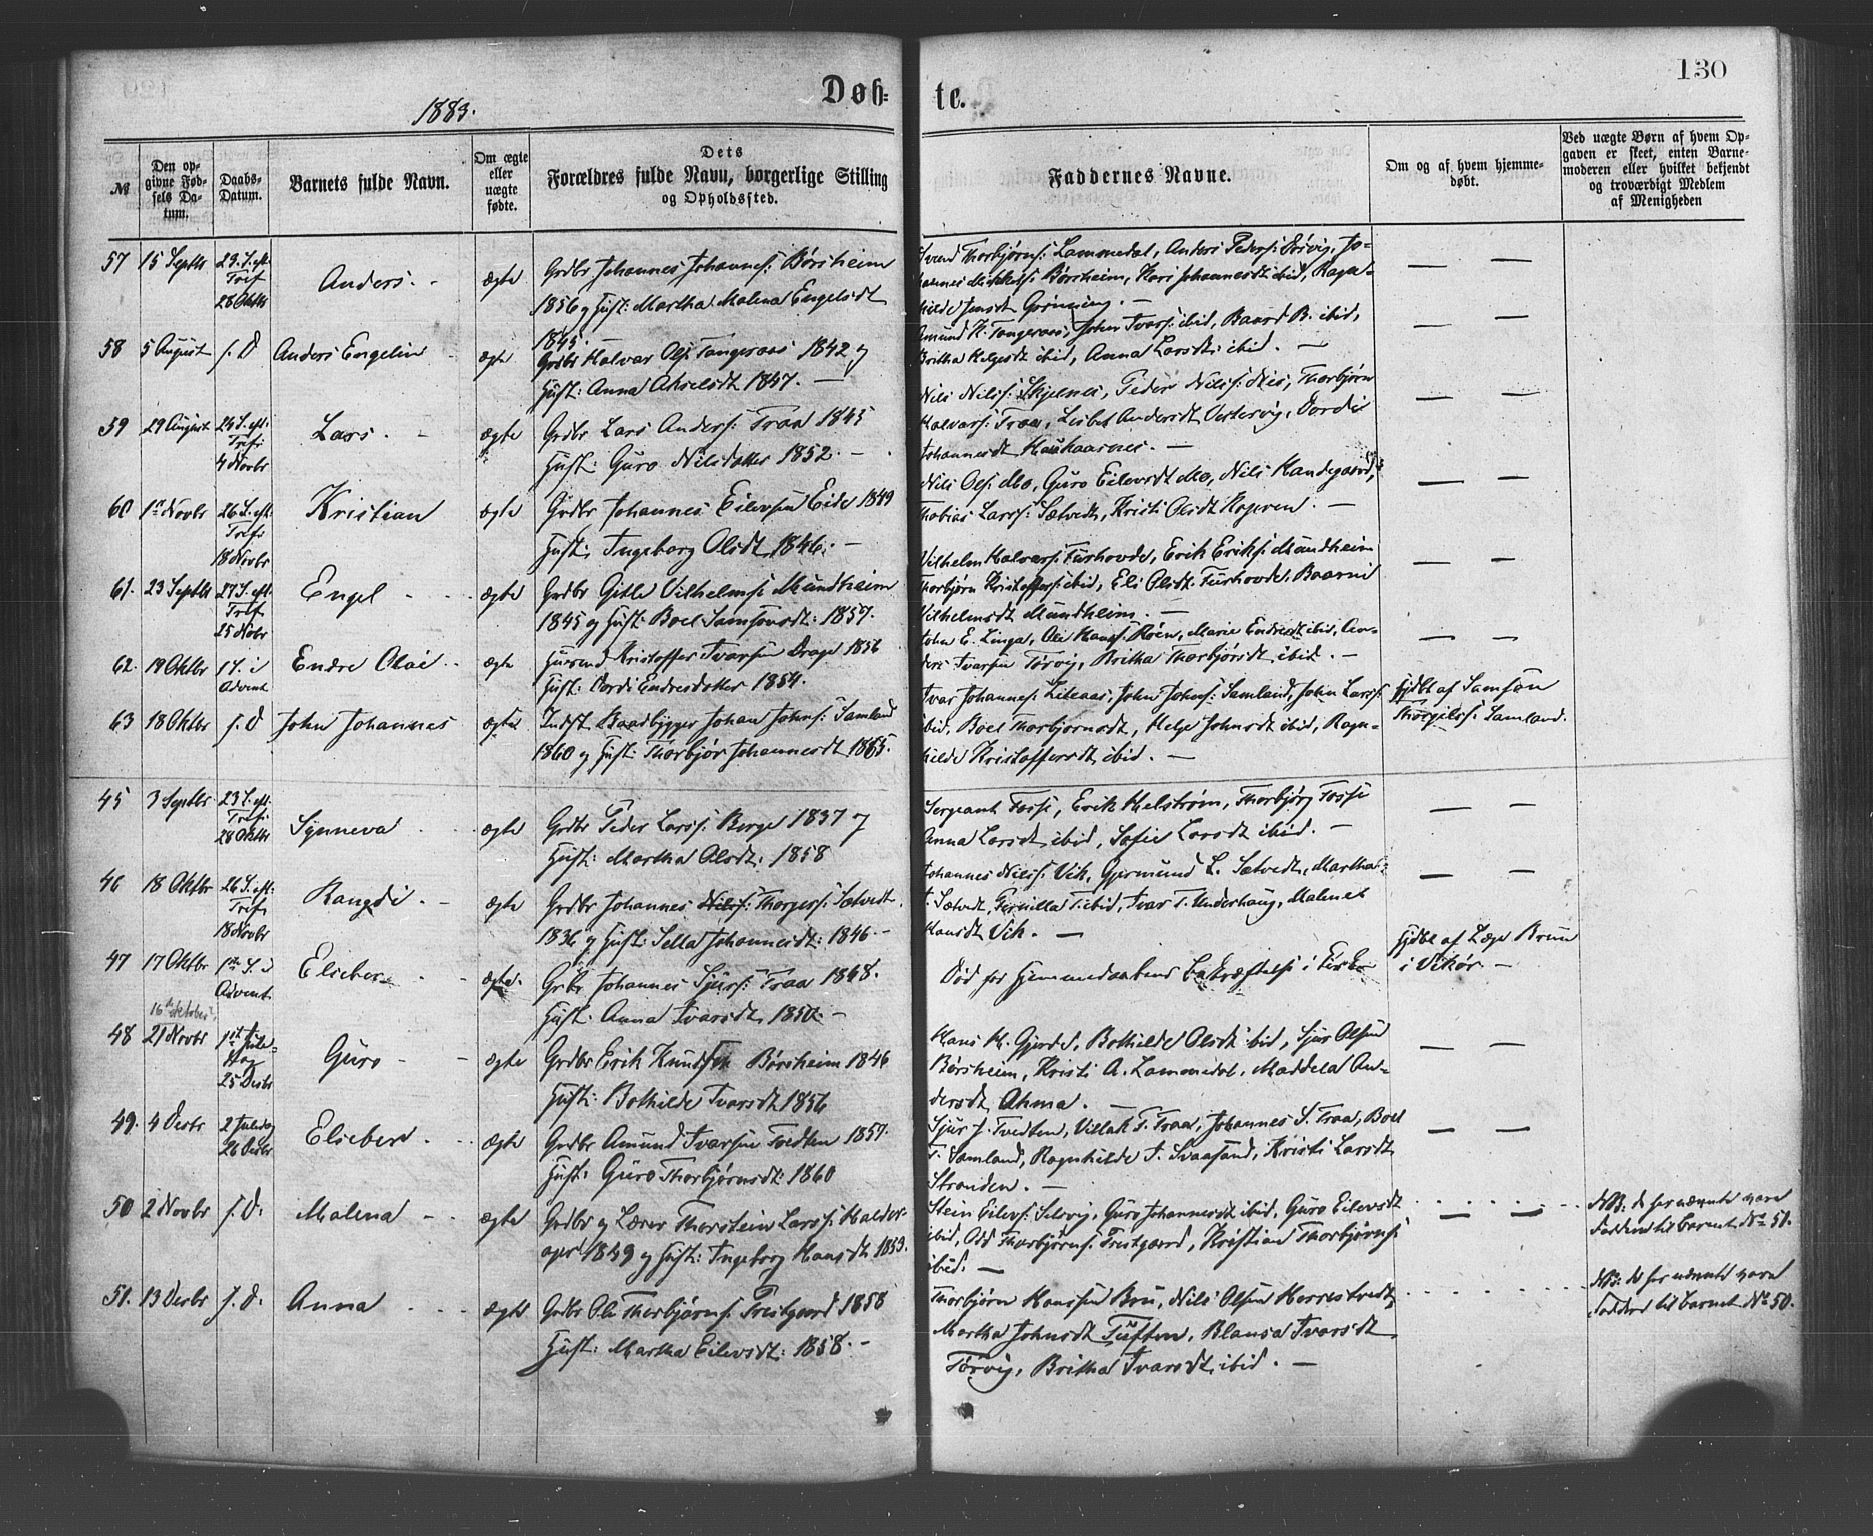 130
Døb-te.
1883.
№
Den op-
givne Fød-
sels Da-
tum.
Daabs-
Datum.
Barnets fulde Navn.
Om ægte
eller
uægte
fødte.
Dets
Forældres fulde Navn, borgerlige Stilling
og Opholdssted.
Faddernes Navne.
Om og af hvem hjemme-
døbt.
Ved uægte Børn af hvem Op-
gaven er skeet, enten Barne-
moderen eller hvilket bekjendt
og troværdigt Medlem
af Menigheden
57 15 Septbr 23. S. eft. Tref. 28 Oktbr Anders. ægte
Grdbr Johannes Johannes: Børsheim
1856 og Hust: Martha Malena Engelsdt
1845.
Thorbjørns: Lammedal, Anders Peders: Jo-
hannes Mikkels: Børsheim, Kari Johannesdt ibid, Ragn-
hilde Jensdt Grønning. —
58 5 August s. D Anders Engelin ægte
Grdbr Halvar Ols: Tangeraas 1842 og
Hust: Anna Akselsdt 1847. —
Amund H. Tangeraas, John Ivars: ibid, Baard B. ibid,
Britha Helgesdt ibid, Anna Larsdt: ibid. —
59 29 August 24 S. eft. Tref: 4 Novbr Lars. ægte
Grdbr Lars Anders: Traa 1845
Hust: Guro Nilsdatter 1852. —
Nils Nils: Skjelnes, Peder Nils: Nes, Thorbjørn
Halvars: Traa, Lisbet Andersdt Oustervig, Dordei
Johannesdt
60 1ste Novbr 26 S. eft. Tref: 18 Novbr Kristian ægte
Grdbr Johannes Eilevsen Eide 1849
Hust: Ingeborg Olsdt 1846: —
Nils Ols: Mo, Guro Eilevsdt Mo, Nils Kandegaard,
Thobias Larss: Sætvedt, Kristi Olsdt —
61. 23 Septbr 27 S. eft. Tref. 25 Novbr Engel ægte
Grdbr Gitle Vilhelms: Mundheim
1845 og Hust: Boel Samsonsdt: 1857.
Vilhelm Halvars: Furhovde, Erik Eriks: Mundheim
Thorbjørn Kristoffers: ibid, Eli Olsdt: Furhovde, Baarni
Vilhelmsdt Mundheim. —
62. 19 Oktbr 1 S. i Advent Endre Olai ægte
Husmd Kristoffer Ivarsen Drage 1856
Hust: Dordi Endresdatter 1854.
John E. Linga, Ole Hans: Røen, Marie Endresdt ibid, An-
ders Ivarsen Tørvig, Britha Thorbjørsdt ibid. —
63 18 Oktbr s. D John Johannes ægte
Indst. Baadbygger Johan Johns: Samland
1860 og Hust: Thorbjør Johannesdt 1865.
Ivar Johannes: Liteaas, John Johns: Samland, John Larss:
ibid, Boel Thorbjørnsdt, Helge Johnsdt ibid, Ragn-
hilde Kristoffersdt ibid. —
Hjdbt af Samson
Thorgilss: Samland.
45 3 Septbr 23 S. eft. Tref: 28 Oktbr Synneva ægte
Grdbr Peder Larss: Berge 1837 og
Hust: Martha Olsdt: 1858
Sergeant Fosse, Erik Helstrøm, Thorbjørg Fosse
Anna Larsdt ibid, Sofie Larsdt ibid. —
46 18 Oktbr 26 S. eft: Tref: 18 Novbr Rangdi ægte
Grdbr Johannes Nils: Thorgers: Sætvedt
1836 og Hust: Sella Johannesdt: 1846 —
Johannes Nils: Vik, Gjermund L. Sætvedt, Martha
T. Sætvedt, Pernilla T. ibid, Ivar T. Underhaug, Malene
Hansdt Vik. —
47 17 Oktbr 1ste S. i Advent Elieber ægte.
16de Oktober?
Grbr Johannes Sjurs: Traa 1848.
Hust: Anna Ivarsdt, 1850: —
Død før Hjemmedaabens Bekræftelse i Kirken
Hjdbt af Læge Brun
i Vikør —
48 21 Novbr 1ste Jule-dag 25 Decbr Guro ægte
Grdbr Erik Knudsen Børsheim 1846
Hust: Bothilde Ivarsdt 1856
Hans H. Gjerde, Bothilde Olsdt ibid, Sjur Olsen
Børsheim, Kristi A. Lammedal, Maddela An-
dersdt, —
49. 4 Decbr 2 Juledag 26 Decbr Eliebert. ægte
Grdbr Amund Ivarsen Tvedten 1857.
Hust: Guro Thorbjørnsdt: 1860
Sjur J. Tvedten, Villak T. Traa, Johannes S. Traa, Boel
T. Samland, Ragnhilde J. Svaasand, Kristi Larsdt
Stranden. —
50 2 Novbr s. D. Malena ægte
Grdbr og Lærer Thorstein Larss: Halder-
aper 1849 og Hust: Ingeborg Hansdt 1853.
Stein Eilevs: Selsvig, Guro Johannesdt ibid, Guro Eilevsdt
ibid, Odd Thorbjørns: Prestgaard, Kristian Thorbjørns:
ibid. —
NB: de her nævnte vare
Faddere til Barnet No 51.
51. 13 Decbr s. D. Anna ægte
Grdbr Ole Thorbjørns: Prestgaard 1858
Hust: Martha Eilevsdt: 1858. —
Thorbjørn Hanssen Bru, Nils Olsen Herrestvedt,
Martha Johnsdt Tuften, Blansa Ivarsdt
Tørvig, Britha Ivarsdt ibid. —
NB: de her nævnte vare
Faddere til Barnet No 50.